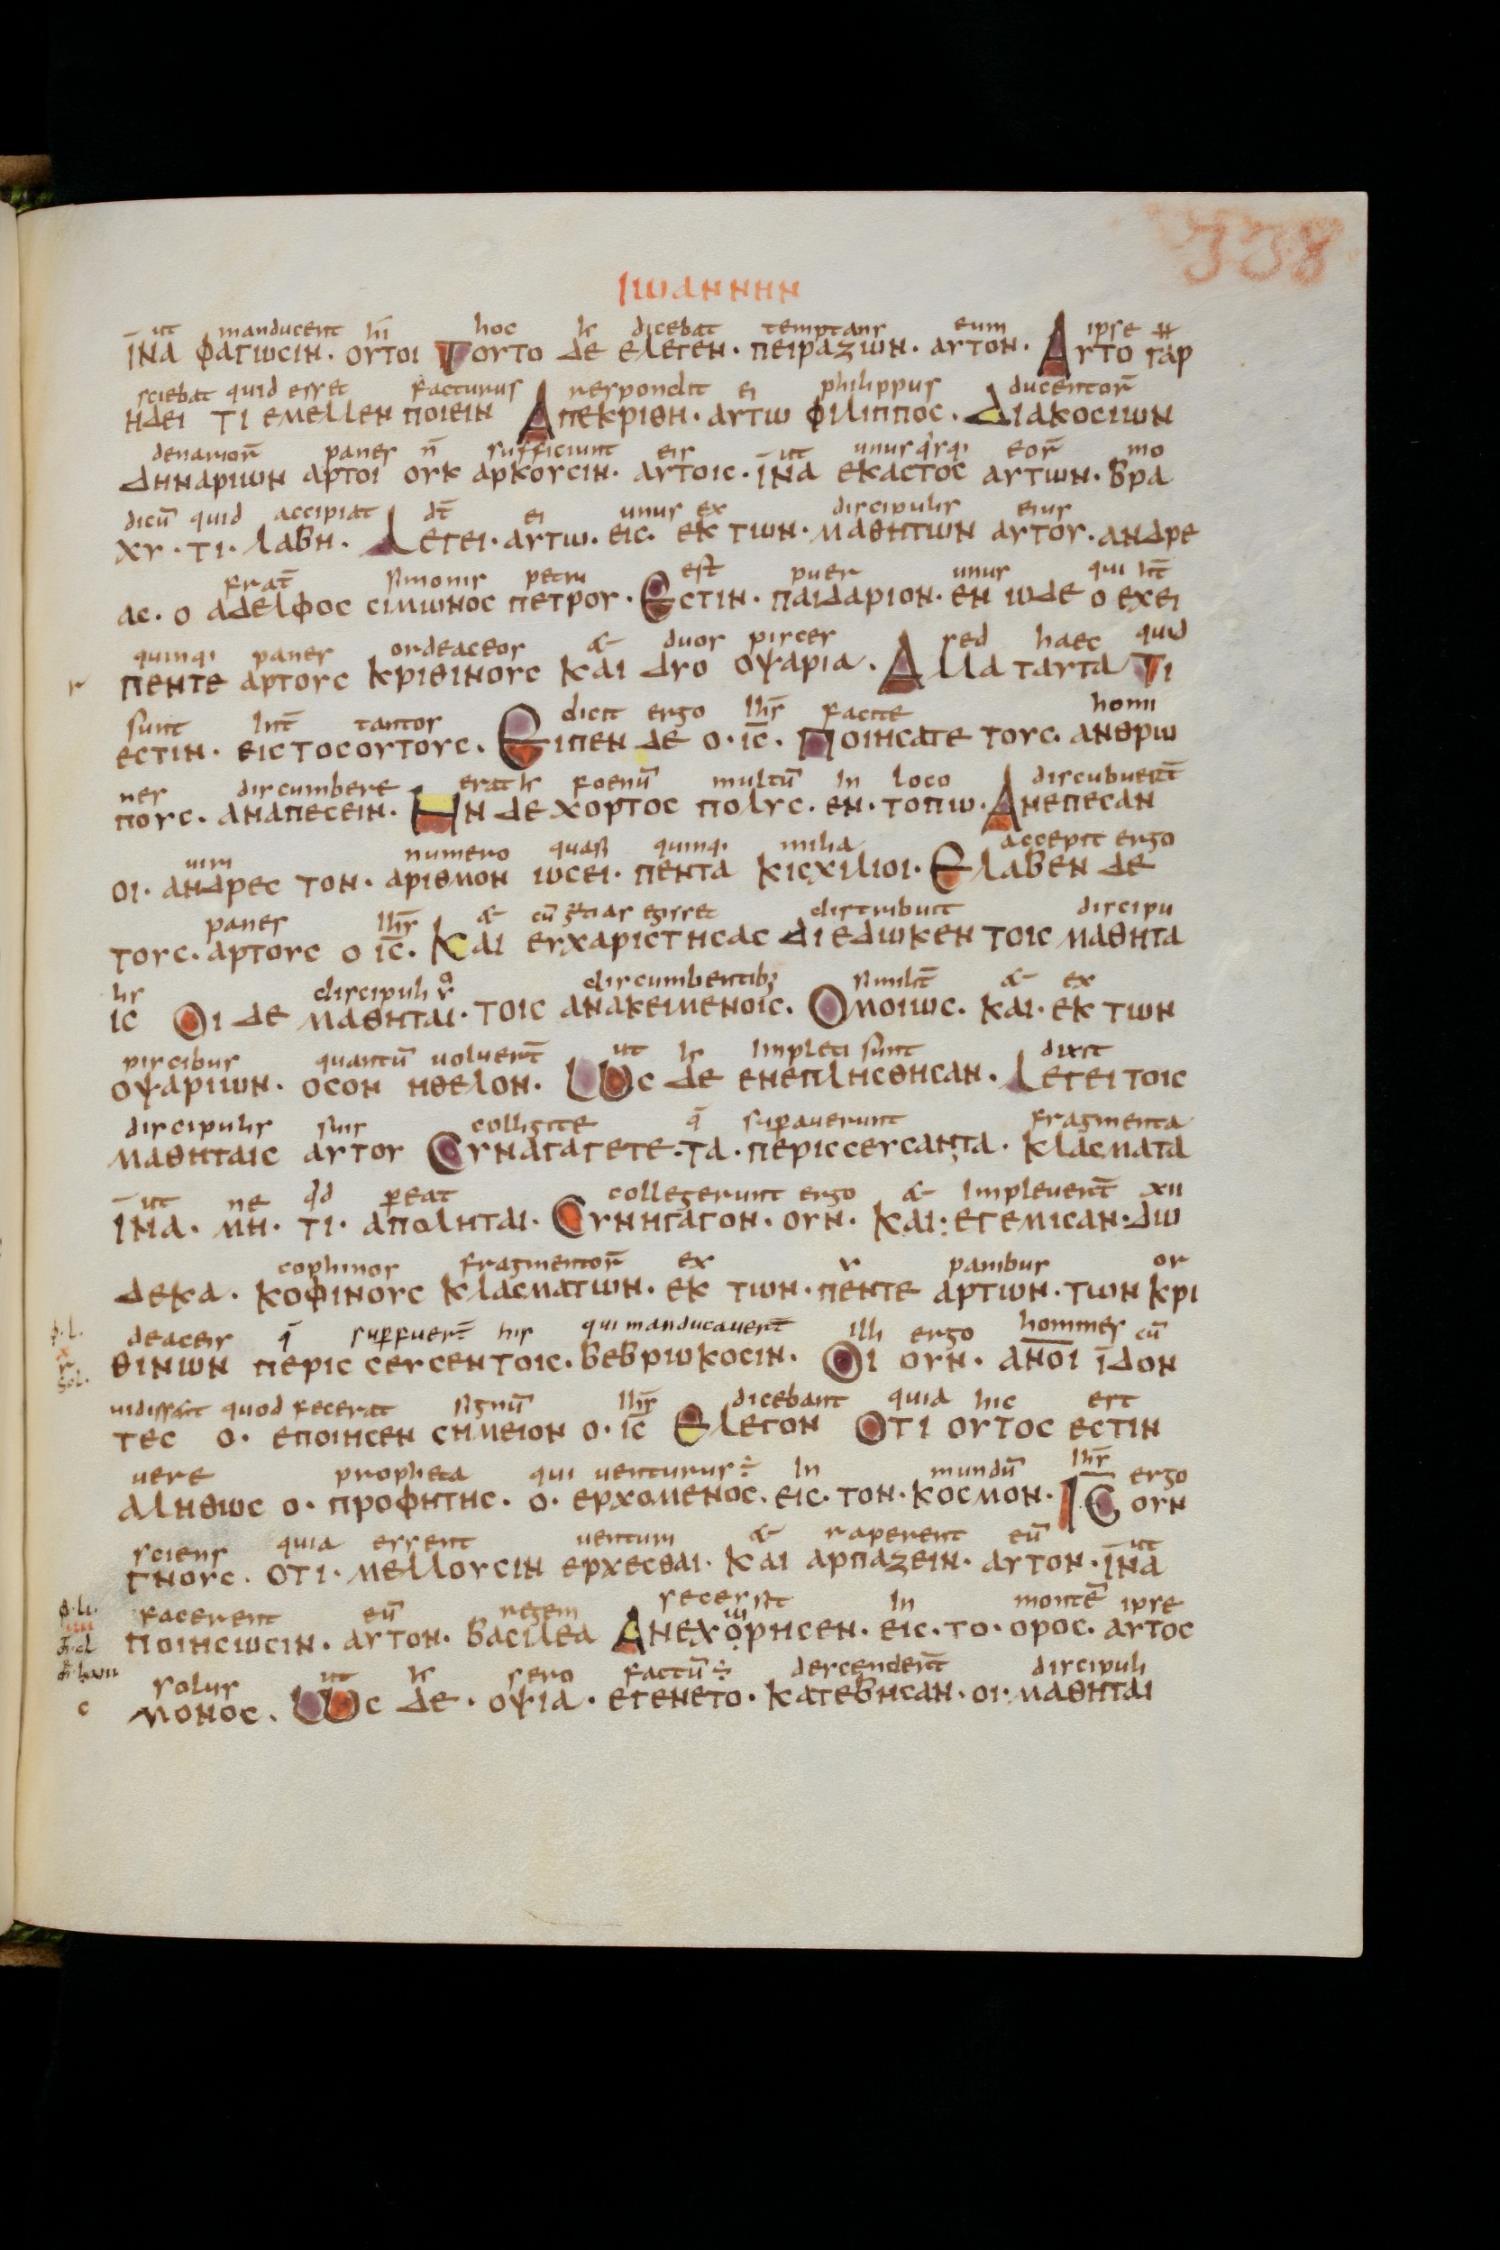 338
ΙωΑΝΝΗΝ
ut manducent hi hoc ħ dicebat temptans eum ipse ⁒
ΙΝΑ ΦΑΓΙωCΙΝ· ΟΥΤΟΙ ΤΟΥΤΟ ΔΕ ΕΛΕΓΕΝ· ΠΕΙΡΑΖωΝ· ΑΥΤΟΝ· ΑΥΤΟ ΓΑΡ
sciebat quid esset facturus respondit ei philippus ducentor̄
ΗΔΕΙ ΤΙ ΕΜΕΛΛΕΝ ΠΟΙΕΙΝ ΑΠΕΚΡΙΘΗ· ΑΥΤω ΦΙΛΙΠΠΟC· ΔΙΑΚΟCΙωΝ
denarior̄ panes n̄ sufficiunt eis ut unusq̇sq; eor̄ mo
ΔΗΝΑΡΙωΝ ΑΡΤΟΙ ΟΥΚ ΑΡΚΟΥCΙΝ· ΑΥΤΟΙC· ΙΝΑ ΕΚΑCΤΟC ΑΥΤωΝ· ΒΡΑ
dicū quid accipiat dt̄ ei unus ex discipulis eius
ΧΥ· ΤΙ· ΛΑΒΗ· ΛΕΓΕΙ· ΑΥΤω· ΕΙC· ΕΚ ΤωΝ· ΜΑΘΗΤωΝ ΑΥΤΟΥ· ΑΝΔΡΕ
frat̄ simonis petri est puer unus qui ht̄
ΑC· Ο ΑΔΕΛΦΟC CΙΜωΝΟC ΠΕΤΡΟΥ· ΕCΤΙΝ· ΠΑΙΔΑΡΙΟΝ· ΕΝ ωΔΕ Ο ΕΧΕΙ
quinq; panes ordeaceos & duos pisces sed haec quid
ΠΕΝΤΕ ΑΡΤΟΥC ΚΡΙΘΙΝΟΥC ΚΑΙ ΔΥΟ ΟΨΑΡΙΑ· ΑΛΛΑ ΤΑΥΤΑ ΤΙ
sunt Int̄ tantos dicit ergo Ihs̄ facite homi
ΕCΤΙΝ· ΕΙC ΤΟCΟΥΤΟΥC· ΕΙΠΕΝ ΔΕ Ο· ΙC̄· ΠΟΙΗCΑΤΕ ΤΟΥC· ΑΝΘΡω
nes discumbere erat ħ foenū multū In loco discubuert̄
ΠΟΥC· ΑΝΑΠΕCΕΙΝ· ΗΝ ΔΕ ΧΟΡΤΟC ΠΟΛΥC· ΕΝ· ΤΟΠω· ΑΝΕΠΕCΑΝ
uiri numero quasi quinq; milia accepit ergo
ΟΙ· ΑΝΔΡΕC ΤΟΝ· ΑΡΙΘΜΟΝ ωCΕΙ· ΠΕΝΤΑ ΚΙCΧΙΛΙΟΙ· ΕΛΑΒΕΝ ΔΕ
panes Ihs̄ & cū ḡtias egisset distribuit discipu
ΤΟΥC· ΑΡΤΟΥC Ο ΙC̄· ΚΑΙ ΕΥΧΑΡΙCΤΗCΑC ΔΙΕΔωΚΕΝ ΤΟΙC ΜΑΘΗΤΑ
lis discipuli discumbentib; similit̄ & ex
ΙC ΟΙ ΔΕ ΜΑΘΗΤΑΙ· ΤΟΙC ΑΝΑΚΕΙΜΕΝΟΙC· ΟΜΟΙωC· ΚΑΙ· ΕΚ ΤωΝ
piscibus quantū voluert̄ ut ħ Impleti sunt dixit
ΟΨΑΡΙωΝ· ΟCΟΝ ΗΘΕΛΟΝ· ωC ΔΕ ΕΝΕΠΛΗCΘΗCΑΝ· ΛΕΓΕΙ ΤΟΙC
discipulis suis colligite q̄ supauerunt fragmenta
ΜΑΘΗΤΑΙC ΑΥΤΟΥ CΥΝΑΓΑΓΕΤΕ· ΤΑ· ΠΕΡΙCCΕΥCΑΝΤΑ· ΚΛΑCΜΑΤΑ
ut ne q̇d pereat collegerunt ergo & Impleuert̄ xii
ΙΝΑ· ΜΗ· ΤΙ· ΑΠΟΛΗΤΑΙ· CΥΝΗΓΑΓΟΝ· ΟΥΝ· ΚΑΙ: ΕΓΕΜΙCΑΝ· Δω
cophinos fragmentor̄ ex v panibus or
ΔΕΚΑ· ΚΟΦΙΝΟΥC ΚΛΑCΜΑΤωΝ· ΕΚ ΤωΝ· ΠΕΝΤΕ ΑΡΤωΝ· ΤωΝ ΚΡΙ
deaceis q̄ supfuert̄ his qui manducauert̄ illi ergo homines cū
ΘΙΝωΝ ΠΕΡΙCCΕΥCΕΝ ΤΟΙC· ΒΕΒΡωΚΟCΙΝ· ΟΙ ΟΥΝ· ΑΝΟΙ ΙΔΟΝ
uidissent quod fecerat signū Ihs̄ dicebant quia hic est
ΤΕC Ο· ΕΠΟΙΗCΕΝ CΗΜΕΙΟΝ Ο· ΙC̄ ΕΛΕΓΟΝ ΟΤΙ ΟΥΤΟC ΕCΤΙΝ
uere propheta qui uenturus ÷ In mundū Ihs̄ ergo
ΑΛΗΘωC Ο· ΠΡΟΦΗΤΗC· Ο· ΕΡΧΟΜΕΝΟC· ΕΙC· ΤΟΝ· ΚΟCΜΟΝ· ΙC̄ ΟΥΝ
sciens quia essent uenturi & raperent eū ut
ΓΝΟΥC· ΟΤΙ· ΜΕΛΛΟΥCΙΝ ΕΡΧΕCΘΑΙ· ΚΑΙ ΑΡΠΑΖΕΙΝ· ΑΥΤΟΝ· ΙΝΑ
facerent eū regem secessit In montē ipse
ΠΟΙΗCωCΙΝ· ΑΥΤΟΝ· ΒΑCΙΛΕΑ ΑΝΕΧΟΡΗCΕΝ· ΕΙC· ΤΟ· ΟΡΟC· ΑΥΤΟC
solus ut ħ sero factū ÷ descendert̄ discipuli
ΜΟΝΟC· ωC ΔΕ· ΟΨΙΑ· ΕΓΕΝΕΤΟ· ΚΑΤΕΒΗCΑΝ· ΟΙ· ΜΑΘΗΤΑΙ